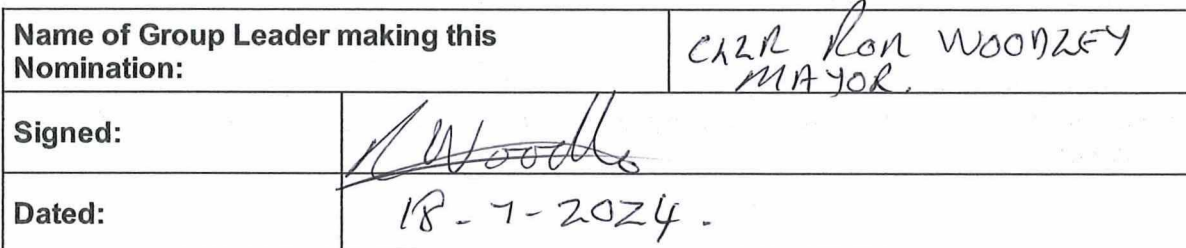 Name of Group Leader making this
Nomination:
CLLR RON WOODLEY
MAYOR.
Signed:
R Woodley
Dated:
18-7-2024.